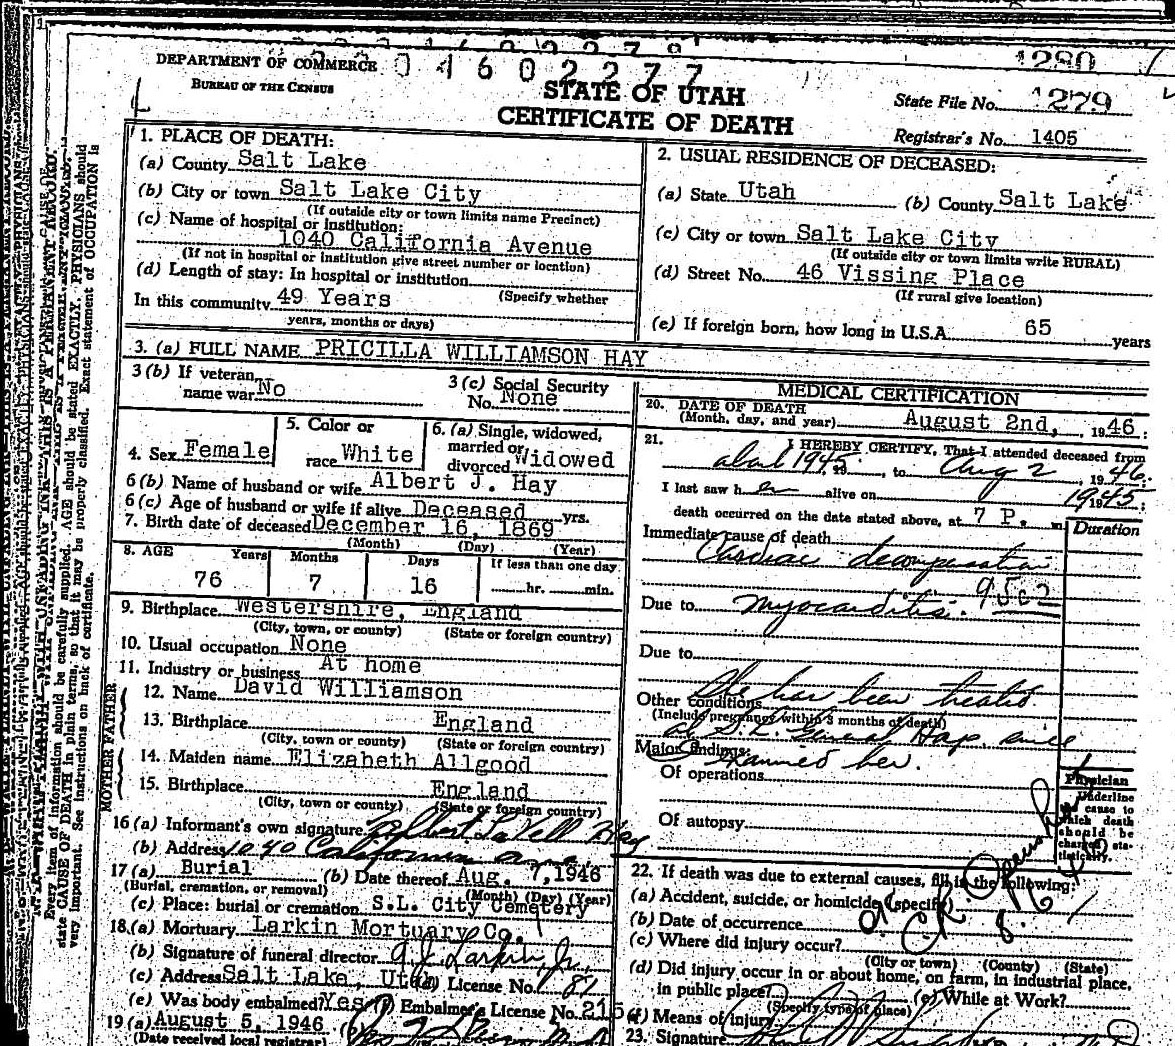 1280
DEPARTMENT OF COMMERCE
0 4 6 0 2 2 7 7
BUREAU OF THE CENSUS
STATE OF UTAH
CERTIFICATE OF DEATH
State File No. 1279
Registrar's No. 1405
1. PLACE OF DEATH:
(a) County Salt Lake
(b) City or town Salt Lake City
(If outside city or town limits name Precinct)
(c) Name of hospital or institution:
1040 California Avenue
(If not in hospital or institution give street number or location)
(d) Length of stay: In hospital or institution
In this community 49 Years (Specify whether
years, months or days)
2. USUAL RESIDENCE OF DECEASED:
(a) State Utah (b) County Salt Lake
(c) City or town Salt Lake City
(If outside city or town limits write RURAL)
(d) Street No. 46 Vissing Place
(If rural give location)
(e) If foreign born, how long in U.S.A. 65 years
3. (a) FULL NAME PRICILLA WILLIAMSON HAY
3 (b) If veteran, name war No
3 (c) Social Security No. None
4. Sex Female
5. Color or race White
6. (a) Single, widowed, married or divorced Widowed
6 (b) Name of husband or wife Albert J. Hay
6 (c) Age of husband or wife if alive Deceased yrs.
7. Birth date of deceased December 16, 1869
(Month) (Day) (Year)
8. AGE Years Months Days If less than one day
76 7 16 hr. min.
9. Birthplace Westershire, England
(City, town, or county) (State or foreign country)
10. Usual occupation None
11. Industry or business At home
FATHER
12. Name David Williamson
13. Birthplace England
(City, town or county) (State or foreign country)
MOTHER
14. Maiden name Elizabeth Allgood
15. Birthplace England
(City, town or county) (State or foreign country)
16 (a) Informant's own signature Hay
(b) Address 1040 California
17 (a) Burial (b) Date thereof Aug. 7, 1946
(Burial, cremation, or removal) (Month) (Day) (Year)
(c) Place: burial or cremation S.L. City Cemetery
18. (a) Mortuary Larkin Mortuary Co.
(b) Signature of funeral director A.J. Larkin, Jr.
(c) Address Salt Lake, Utah (d) License No. 87
(e) Was body embalmed? Yes (f) Embalmer's License No. 215
19 (a) August 5, 1946 (b)
(Date received local registrar)
MEDICAL CERTIFICATION
20. DATE OF DEATH
(Month, day, and year) August 2nd, 1946
21. I HEREBY CERTIFY, That I attended deceased from
about 1945, to Aug 2, 1946
I last saw her alive on 1945;
death occurred on the date stated above, at 7 P. m
Duration
Immediate cause of death
Cardiac decompensation
Due to Myocarditis.
Due to
Other conditions She has been treated
(Include pregnancy within 3 months of death)
at S.L. General Hosp. since
Major findings: I examined her.
Of operations
Of autopsy
Physician
Underline the cause to which death should be charged statistically.
22. If death was due to external causes, fill in the following:
(a) Accident, suicide, or homicide (specify)
(b) Date of occurrence
(c) Where did injury occur?
(City or town) (County) (State)
(d) Did injury occur in or about home, on farm, in industrial place, in public place?
(Specify type of place)
(e) While at Work?
(f) Means of injury
23. Signature
Every item of information should be carefully supplied. AGE should be stated EXACTLY. PHYSICIANS should
state CAUSE OF DEATH in plain terms, so that it may be properly classified. Exact statement of OCCUPATION is
very important. See instructions on back of certificate.